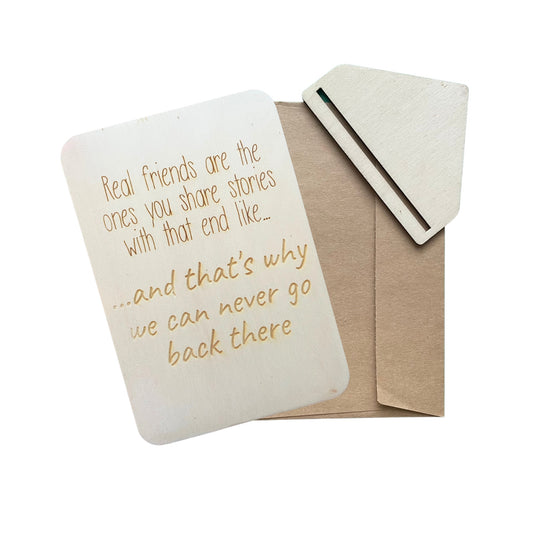 Real friends are the
ones you share stories
with that end like...
...and that's why
we can never go
back there